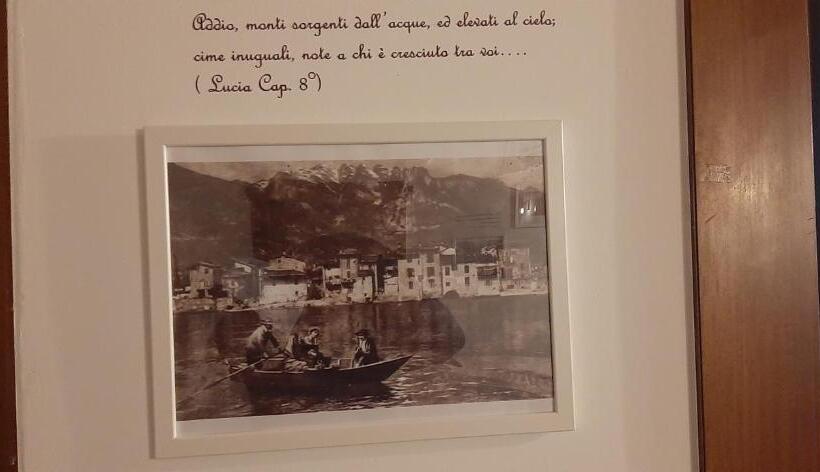 Addio, monti sorgenti dall'acque, ed elevati al cielo;
cime inuguali, note a chi è cresciuto tra voi....
( Lucia Cap. 8°)